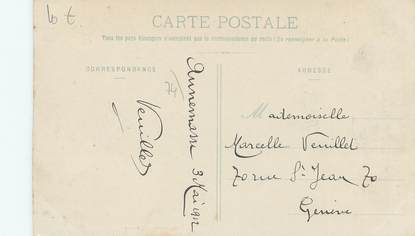 CARTE POSTALE
Tous les pays étrangers n'acceptent pas la correspondance au recto (Se renseigner à la Poste)
CORRESPONDANCE
ADRESSE
74
Annemasse 3 Mai 1912
Veuillet
Mademoiselle
Marcelle Veuillet
70 rue St Jean 70
Genève